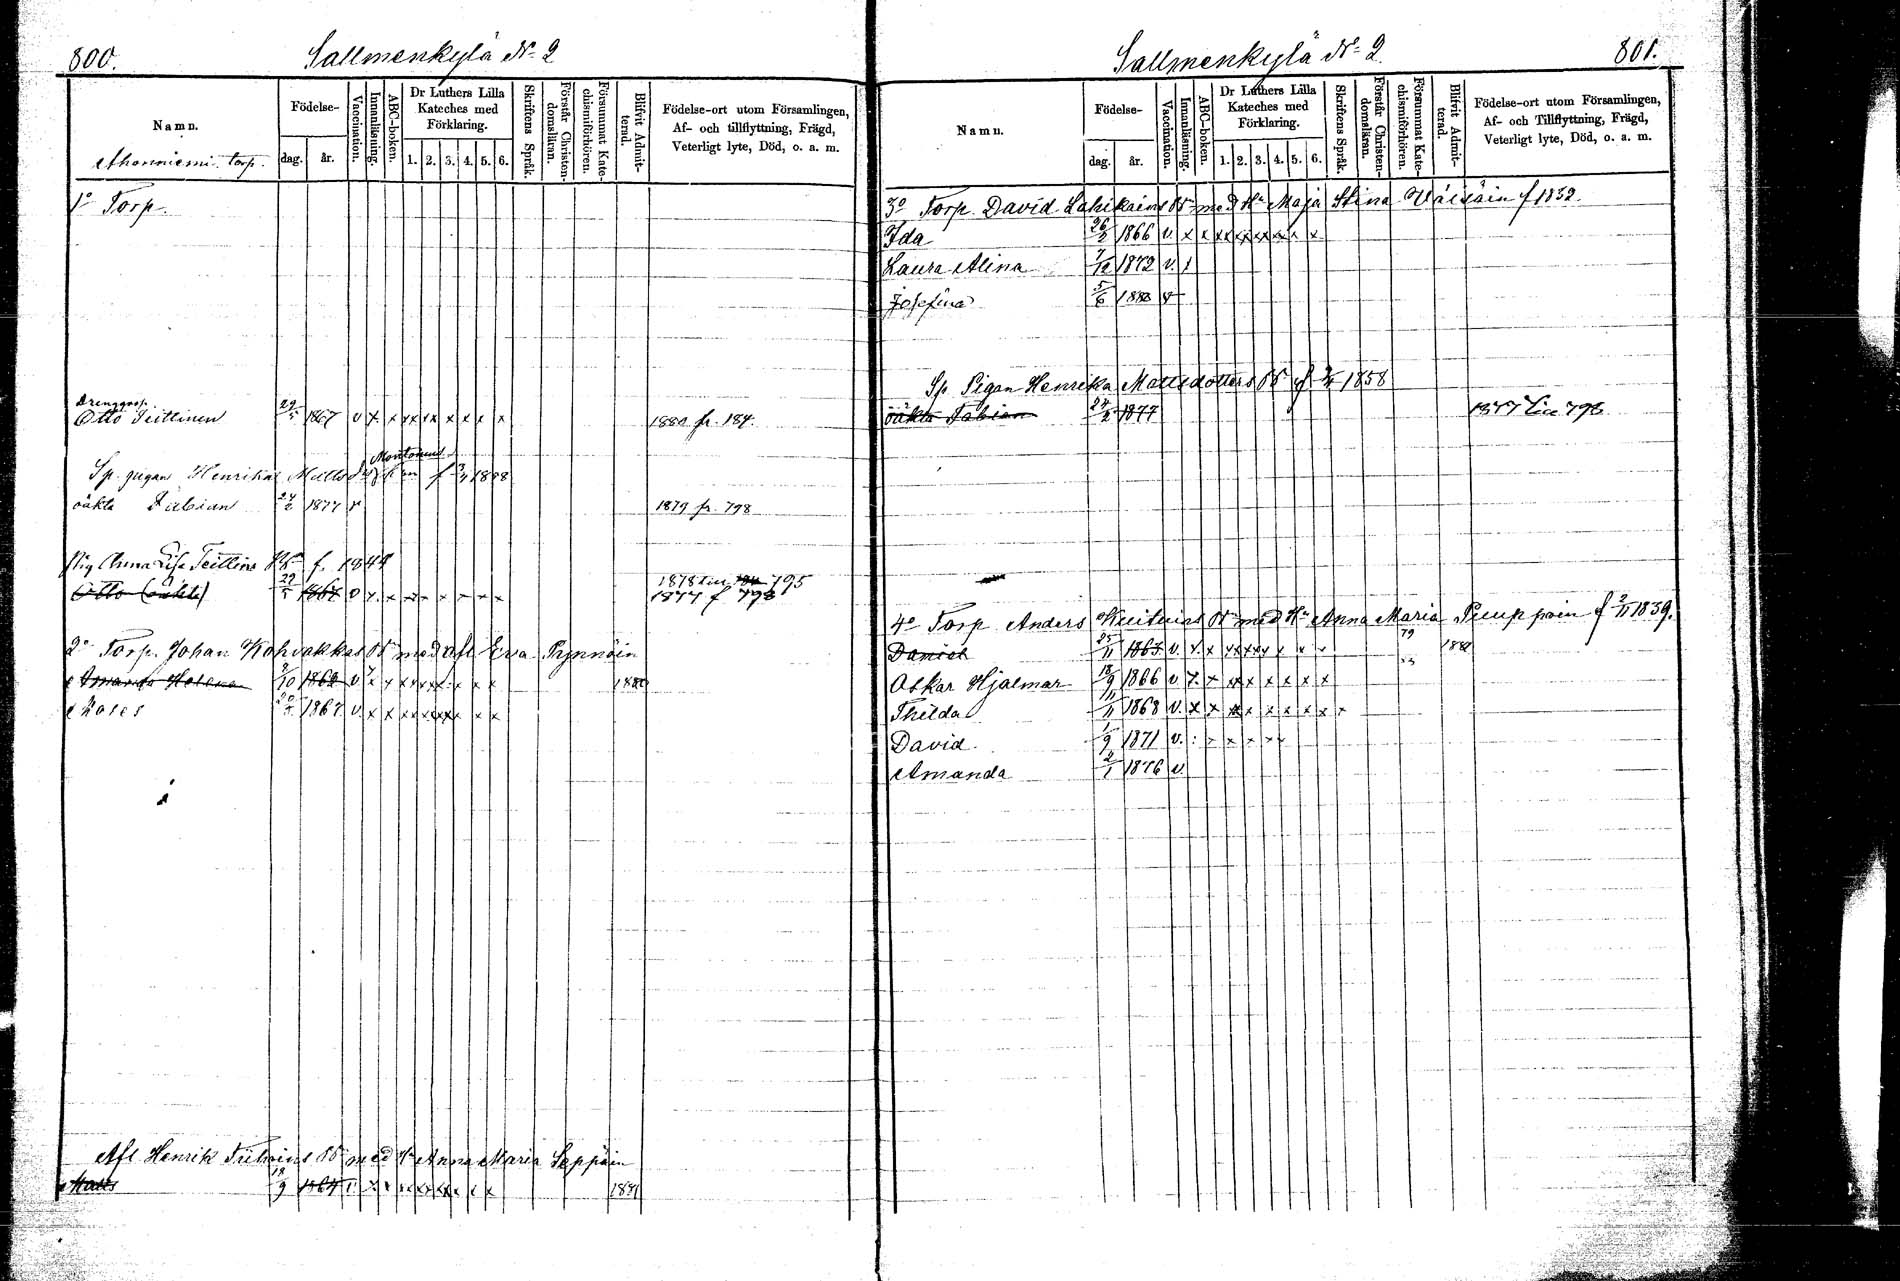 800.
Sallmenkylä No 2
Namn.
Födelse-
dag.
år.
Vaccination.
Innanläsning.
ABC-boken.
Dr Luthers Lilla
Kateches med
Förklaring.
1. 2. 3. 4. 5. 6.
Skriftens Språk.
Förstår Christen-
domsläran.
Försummat Kate-
chismiförhören.
Blifvit Admit-
terad.
Födelse-ort utom Församlingen,
Af- och tillflyttning, Frägd,
Veterligt lyte, Död, o. a. m.
Ahonniemi torp.
1o Torp.
Drenggoss.
Otto Teittinen 29/5 1867 v x x xx xx x x x x 1880 fr. 184.
Montonens
Sp. pigan Henrika Matts f 3/4 1858
oäkta Fabian 24/2 1877 v 1879 fr. 798
Pig Anna Lisa Teittins Bn f. 1844
1878 Lin 184 795
Otto (oäkta) 29/5 1867 v x x x x x x x 1877 f 798
2o Torp. Johan Kohvakkas Bn med afl Eva Pynnöin
Amanda Helena 9/10 1862 v x x x x x x x x x 1880
Moses 1867 v x x x x x x x x x
Afl Henrik Tiihoins Bn med Hu Anna Maria Seppäin
Matts 18/9 1864 x x x x x x x x 1881
Sallmenkylä No 2.
801.
Namn.
Födelse-
dag.
år.
Vaccination.
Innanläsning.
ABC-boken.
Dr Luthers Lilla
Kateches med
Förklaring.
1. 2. 3. 4. 5. 6.
Skriftens Språk.
Förstår Christen-
domsläran.
Försummat Kate-
chismiförhören.
Blifvit Admit-
terad.
Födelse-ort utom Församlingen,
Af- och Tillflyttning, Frägd,
Veterligt lyte, Död, o. a. m.
3o Torp. David Lahikains Bn med Hu Maja Stina Wäisäin f 1832.
Ida 26/2 1866 v. x x xx xx xx xx x x
Laura Alina 7/12 1872 v. x
Josefina 5/6 1880 v
Sp Pigan Henrika Mattsdotters Bn f 3/4 1858
oäkta Fabian 24/2 1877 1877 Lin 798
4o Torp Anders Kuituins Bn med Hu Anna Maria Pumppoin f 2/11 1839.
Daniel 25/11 1863 v. x x xx xx x x x x 79 1880
Oskar Hjalmar 18/9 1866 v. x x xx x x x x x
Thilda 11/11 1868 v. x x xx x x x x x x
David 1/9 1871 v. x x x x x
Amanda 2/1 1876 v.